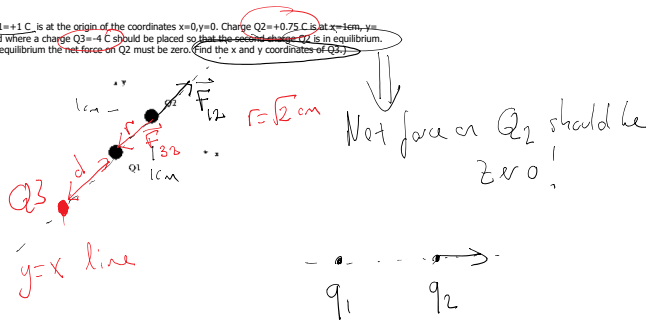 1=+1 C is at the origin of the coordinates x=0,y=0. Charge Q2=+0.75 C is at x=1cm, y=
d where a charge Q3=-4 C should be placed so that the second charge Q2 is in equilibrium.
equilibrium the net force on Q2 must be zero. Find the x and y coordinates of Q3.)
y
1cm
Q2
F12
r=√2 cm
Net force on Q2 should be
zero!
r
F32
Q1
x
1cm
d
Q3
y=x line
q1
q2